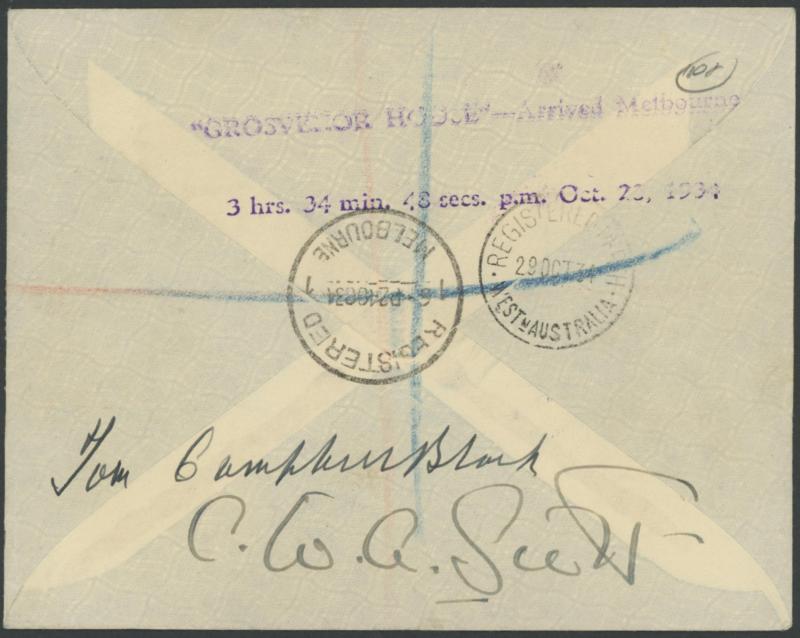 108
"GROSVENOR HOUSE"—Arrived Melbourne
3 hrs. 34 min. 48 secs. p.m. Oct. 23, 1934
REGISTERED PERTH
29 OCT 34
WESTN AUSTRALIA
REGISTERED
1 1
MELBOURNE
Tom Campbell Black
C. W. A. Scott